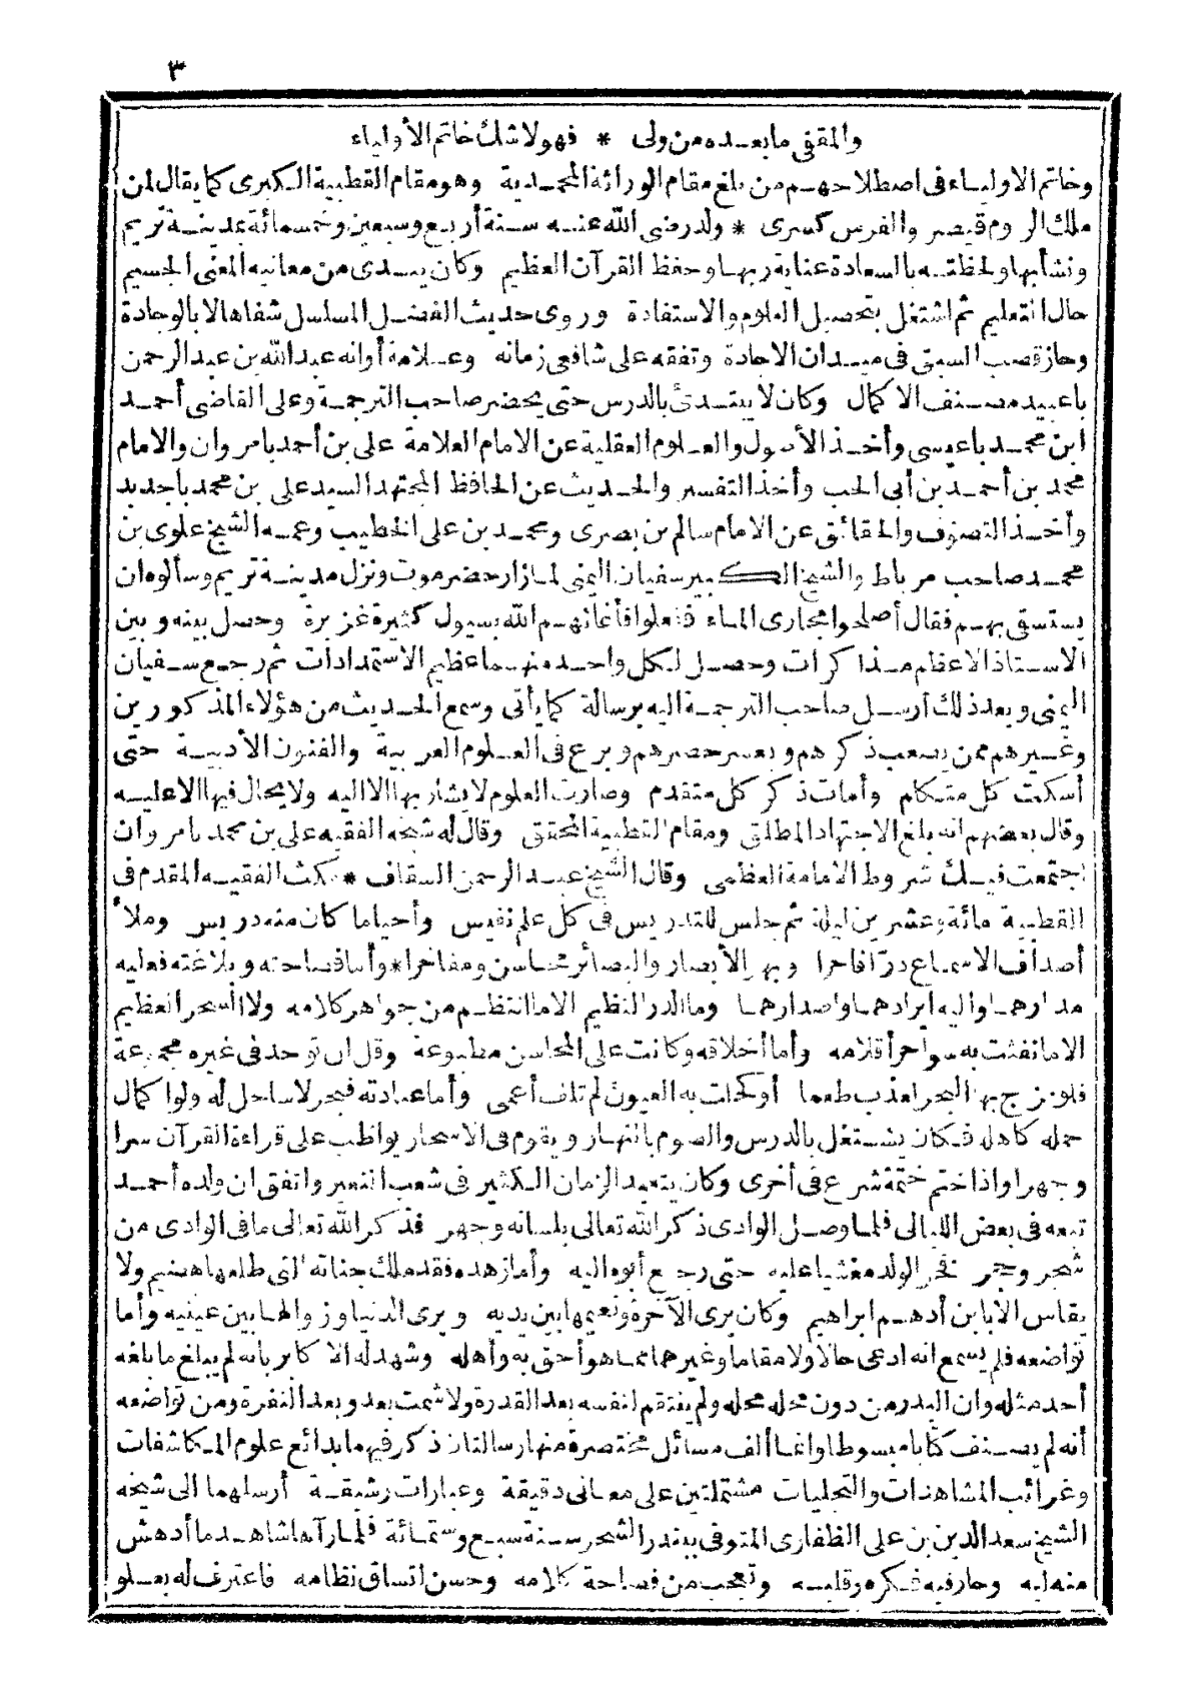 ٣
والمقفى ما بعده من ولى * فهو لا شك خاتم الأولياء
وخاتم الاولياء فى اصطلاحهم من بلغ مقام الوراثة المحمدية وهو مقام القطبية الكبرى كما يقال لمن
ملك الروم قيصر والفرس كسرى * ولد رضى الله عنه سنة أربع وسبعين وخمسمائة بمدينة تريم
ونشأ بها ولحظته بالسعادة عناية ربها وحفظ القرآن العظيم وكان يبدى من معانيه المعنى الجسيم
حال التعليم ثم اشتغل بتحصيل العلوم والاستفادة وروى حديث الفضل المسلسل شفاها لا بالوجادة
وحاز قصب السبق فى ميدان الاجادة وتفقه على شافعى زمانه وعلامة أوانه عبد الله بن عبد الرحمن
باعبيد مصنف الاكمال وكان لا يبتدئ بالدرس حتى يحضر صاحب الترجمة وعلى القاضى أحمد
ابن محمد باعيسى وأخذ الأصول والعلوم العقلية عن الامام العلامة على بن أحمد بامروان والامام
محمد بن أحمد بن أبى الحب وأخذ التفسير والحديث عن الحافظ المجتهد السيد على بن محمد باجديد
وأخذ التصوف والحقائق عن الامام سالم بن بصرى ومحمد بن على الخطيب وعمه الشيخ علوى بن
محمد صاحب مرباط والشيخ الكبير سفيان اليمنى لما زار حضرموت ونزل مدينة تريم وسألوه ان
يستسقى بهم فقال أصلحوا مجارى الماء ففعلوا فأغاثهم الله بسيول كثيرة غزيرة وحصل بينه وبين
الاستاذ الاعظم مذاكرات وحصل لكل واحد منهما عظيم الاستمدادات ثم رجع سفيان
اليمنى وبعد ذلك أرسل صاحب الترجمة اليه برسالة كما يأتى وسمع الحديث من هؤلاء المذكورين
وغيرهم ممن يصعب ذكرهم ويعسر حصرهم وبرع فى العلوم العربية والفنون الأدبية حتى
أسكت كل متكلم وأمات ذكر كل متقدم وصارت العلوم لا يشار بها الا اليه ولا يحال فيها الا عليه
وقال بعضهم انه بلغ الاجتهاد المطلق ومقام القطبية المحقق وقال له شيخه الفقيه على بن محمد بامروان
اجتمعت فيك شروط الامامة العظمى وقال الشيخ عبد الرحمن السقاف * مكث الفقيه المقدم فى
القطبية مائة وعشرين ليلة ثم جلس للتدريس فى كل علم نفيس وأحيا ما كان منه دريس وملأ
أصداف الاسماع درّا فاخرا وبهر الأبصار والبصائر محاسن ومفاخرا * وأما فصاحته وبلاغته فعليه
مدارهما واليه ايرادهما واصدارهما وما الدر النظيم الا ما انتظم من جواهر كلامه ولا السحر العظيم
الا ما نفثت به سواحر أقلامه وأما أخلاقه وكانت على المحاسن مطبوعة وقل ان توجد فى غيره مجموعة
فلو مزج بها البحر لعذب طعما أو كحلت به العيون لم تلف أعمى وأما عبادته فبحر لا ساحل له ولو اكمال
حمله كاهله فكان يشتغل بالدرس والصوم بالنهار ويقوم فى الاسحار يواظب على قراءة القرآن سرا
وجهرا واذا ختم ختمة شرع فى أخرى وكان يتعبد الزمان الكثير فى شعب النعير واتفق ان ولده أحمد
تبعه فى بعض الليالى فلما وصل الوادى ذكر الله تعالى بلسانه وجهر فذكر الله تعالى ما فى الوادى من
شجر وحجر فخر الولد مغشيا عليه حتى رجع أبوه اليه وأما زهده فقد ملك جنانه التى طلعها هضيم ولا
يقاس الا بابن أدهم ابراهيم وكان يرى الآخرة ونعيمها بين يديه ويرى الدنيا وزوالها بين عينيه وأما
تواضعه فلم يسمع انه ادعى حالا ولا مقاما وغيرهما مما هو أحق به وأهله وشهد له الاكابر بانه لم يبلغ ما بلغه
أحد مثله وان البدر من دون محله محله ولم ينتقم لنفسه بعد القدرة ولا شمت بعدو بعد النفرة ومن تواضعه
أنه لم يصنف كتابا مبسوطا وانما ألف مسائل مختصرة منها رسالتان ذكر فيهما بدائع علوم المكاشفات
وغرائب المشاهدات والتجليات مشتملتين على معانى دقيقة وعبارات رشيقة أرسلهما الى شيخه
الشيخ سعد الدين بن على الظفارى المتوفى ببندر الشحر سنة سبع وستمائة فلما رآها شاهد ما أدهش
منه لبه وحار فيه فكره وقلبه وتعجب من فصاحة كلامه وحسن اتساق نظامه فاعترف له بعلو